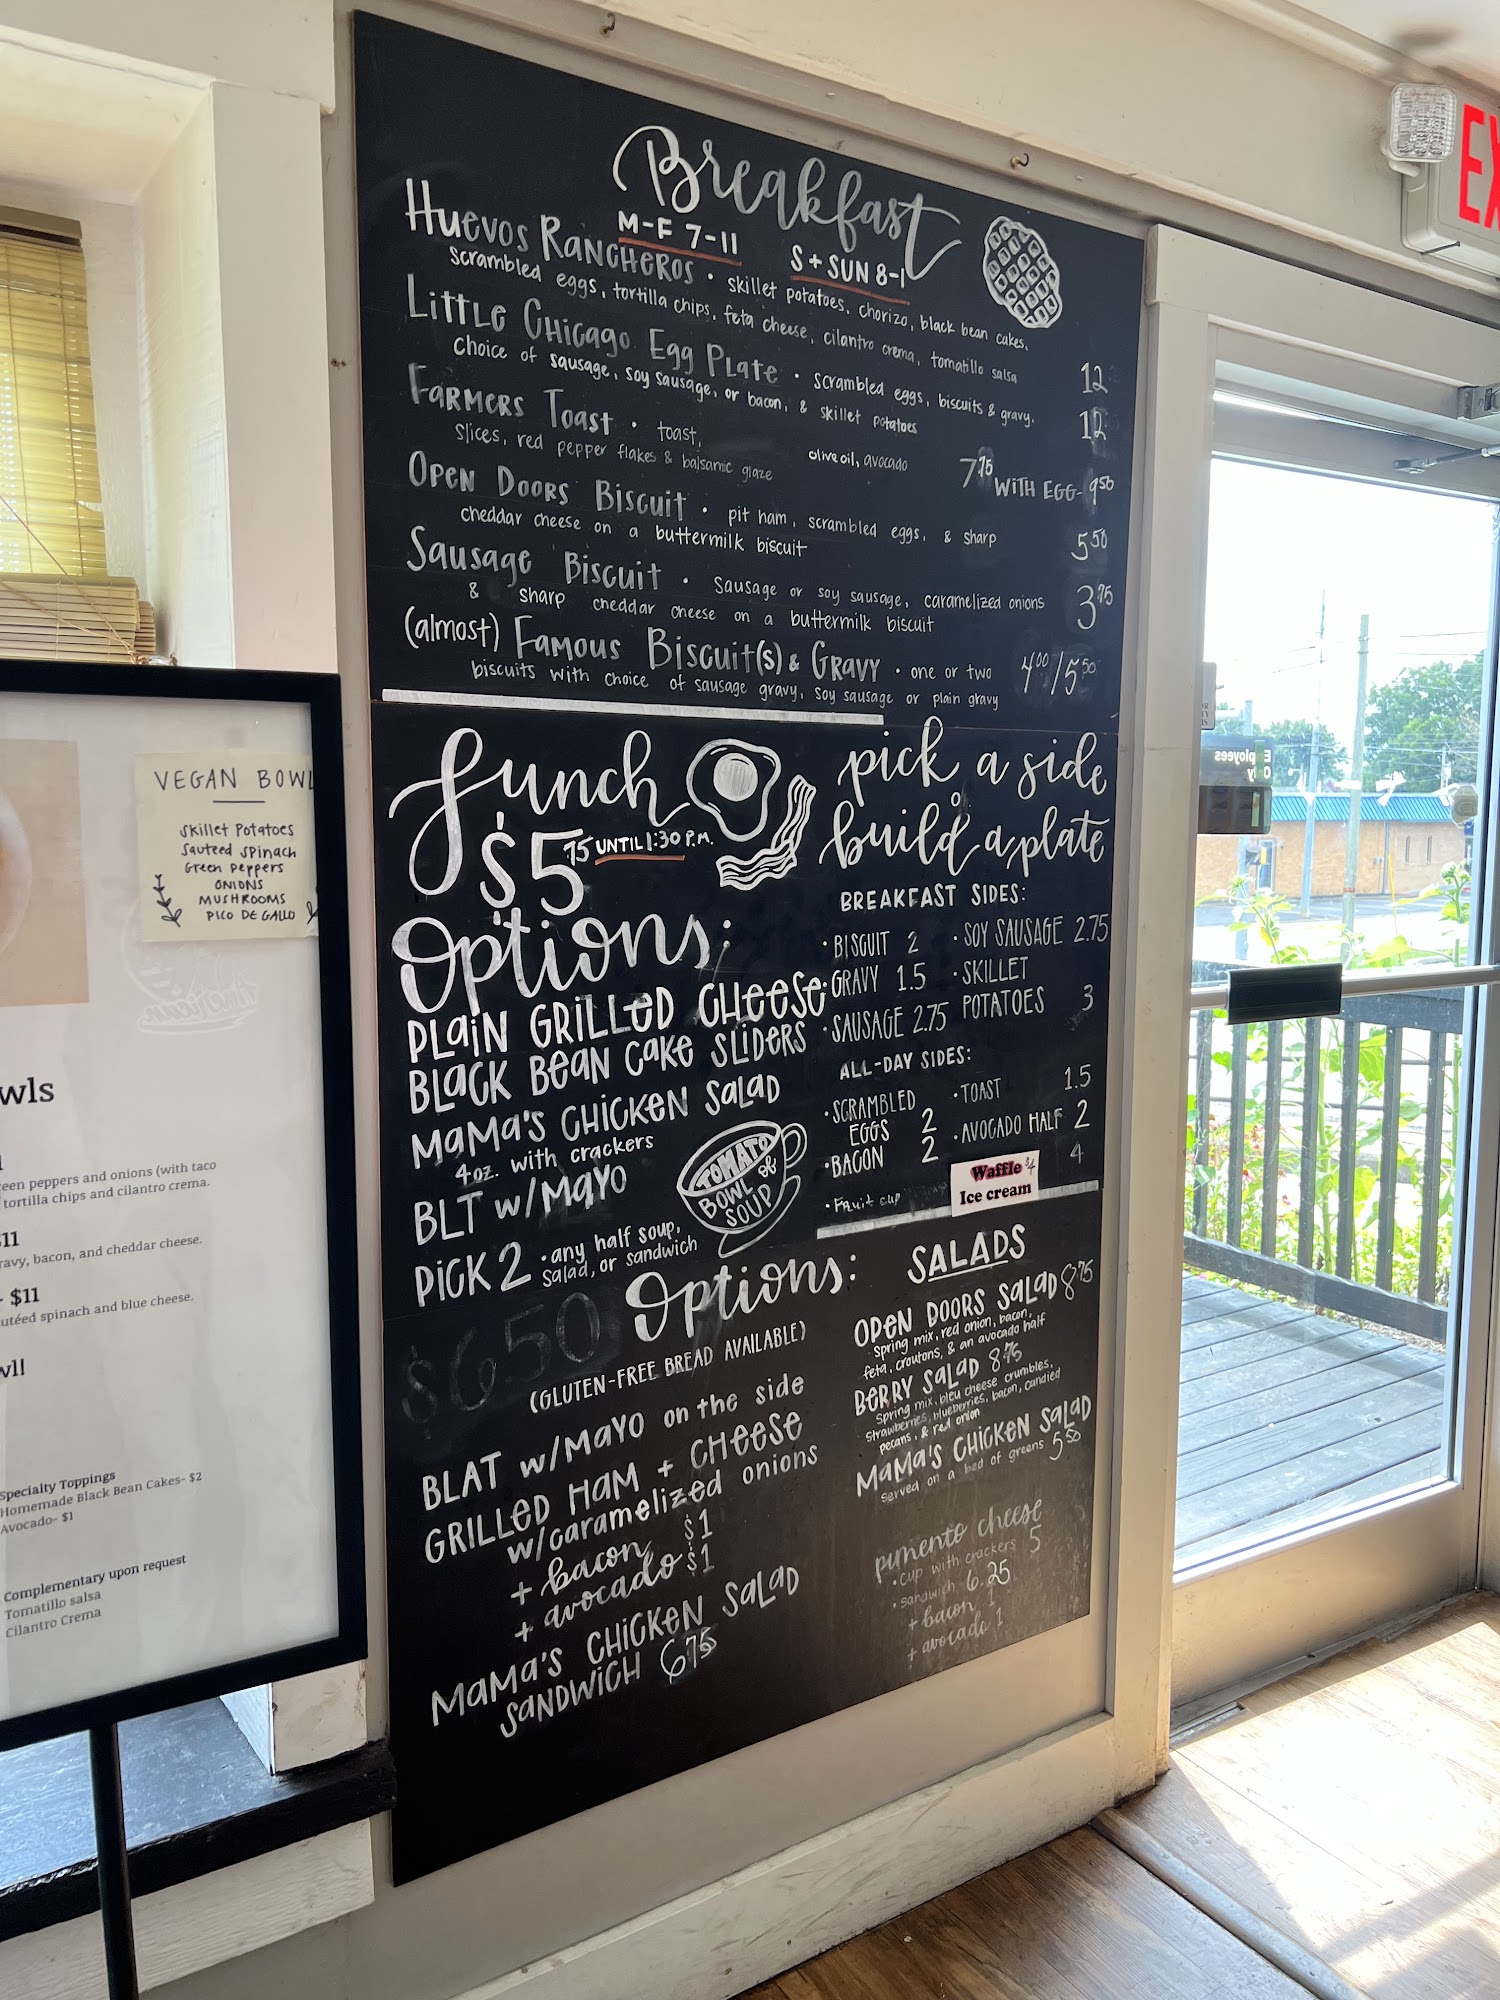 Breakfast
M-F 7-11 S + SUN 8-1
HUEVOS RANCHEROS • skillet potatoes, chorizo, black bean cakes,
scrambled eggs, tortilla chips, feta cheese, cilantro crema, tomatillo salsa 12
LITTLE CHICAGO EGG PLATE • scrambled eggs, biscuits & gravy,
choice of sausage, soy sausage, or bacon, & skillet potatoes 12
FARMERS TOAST • toast, olive oil, avocado
slices, red pepper flakes & balsamic glaze 7.75 WITH EGG- 9.50
OPEN DOORS BISCUIT • pit ham, scrambled eggs, & sharp
cheddar cheese on a buttermilk biscuit 5.50
SAUSAGE BISCUIT • sausage or soy sausage, caramelized onions
& sharp cheddar cheese on a buttermilk biscuit 3.75
(almost) FAMOUS BISCUIT(S) & GRAVY • one or two
biscuits with choice of sausage gravy, soy sausage or plain gravy 4.00/5.50
Lunch
$5.75 UNTIL 1:30 P.M.
Options:
PLAIN GRILLED CHEESE
BLACK BEAN CAKE SLIDERS
MAMA'S CHICKEN SALAD
4 oz. with crackers
BLT w/MAYO
PICK 2 • any half soup,
salad, or sandwich
TOMATO
BOWL of
SOUP
pick a side
or
build a plate
BREAKFAST SIDES:
• BISCUIT 2 • SOY SAUSAGE 2.75
• GRAVY 1.5 • SKILLET
POTATOES 3
• SAUSAGE 2.75
ALL-DAY SIDES:
• SCRAMBLED
EGGS 2
• TOAST 1.5
• BACON 2 • AVOCADO HALF 2
• Fruit cup 4
Waffle $4
Ice cream
$6.50 Options:
(GLUTEN-FREE BREAD AVAILABLE)
BLAT w/MAYO on the side
GRILLED HAM + CHEESE
w/caramelized onions
+ bacon $1
+ avocado $1
MAMA'S CHICKEN SALAD
SANDWICH 6.75
SALADS
OPEN DOORS SALAD 8.75
Spring mix, red onion, bacon,
feta, croutons, & an avocado half
BERRY SALAD 8.75
Spring mix, bleu cheese crumbles,
strawberries, blueberries, bacon, candied
pecans, & red onion
MAMA'S CHICKEN SALAD
served on a bed of greens 5.50
pimento cheese
• cup with crackers 5
• sandwich 6.25
+ bacon 1
+ avocado 1
VEGAN BOWL
Skillet Potatoes
Sauteed Spinach
Green Peppers
ONIONS
MUSHROOMS
PICO DE GALLO
wls
een peppers and onions (with taco
tortilla chips and cilantro crema.
$11
avy, bacon, and cheddar cheese.
- $11
utéed spinach and blue cheese.
wl!
Specialty Toppings
Homemade Black Bean Cakes- $2
Avocado- $1
Complementary upon request
Tomatillo salsa
Cilantro Crema
EX
Employees
Only